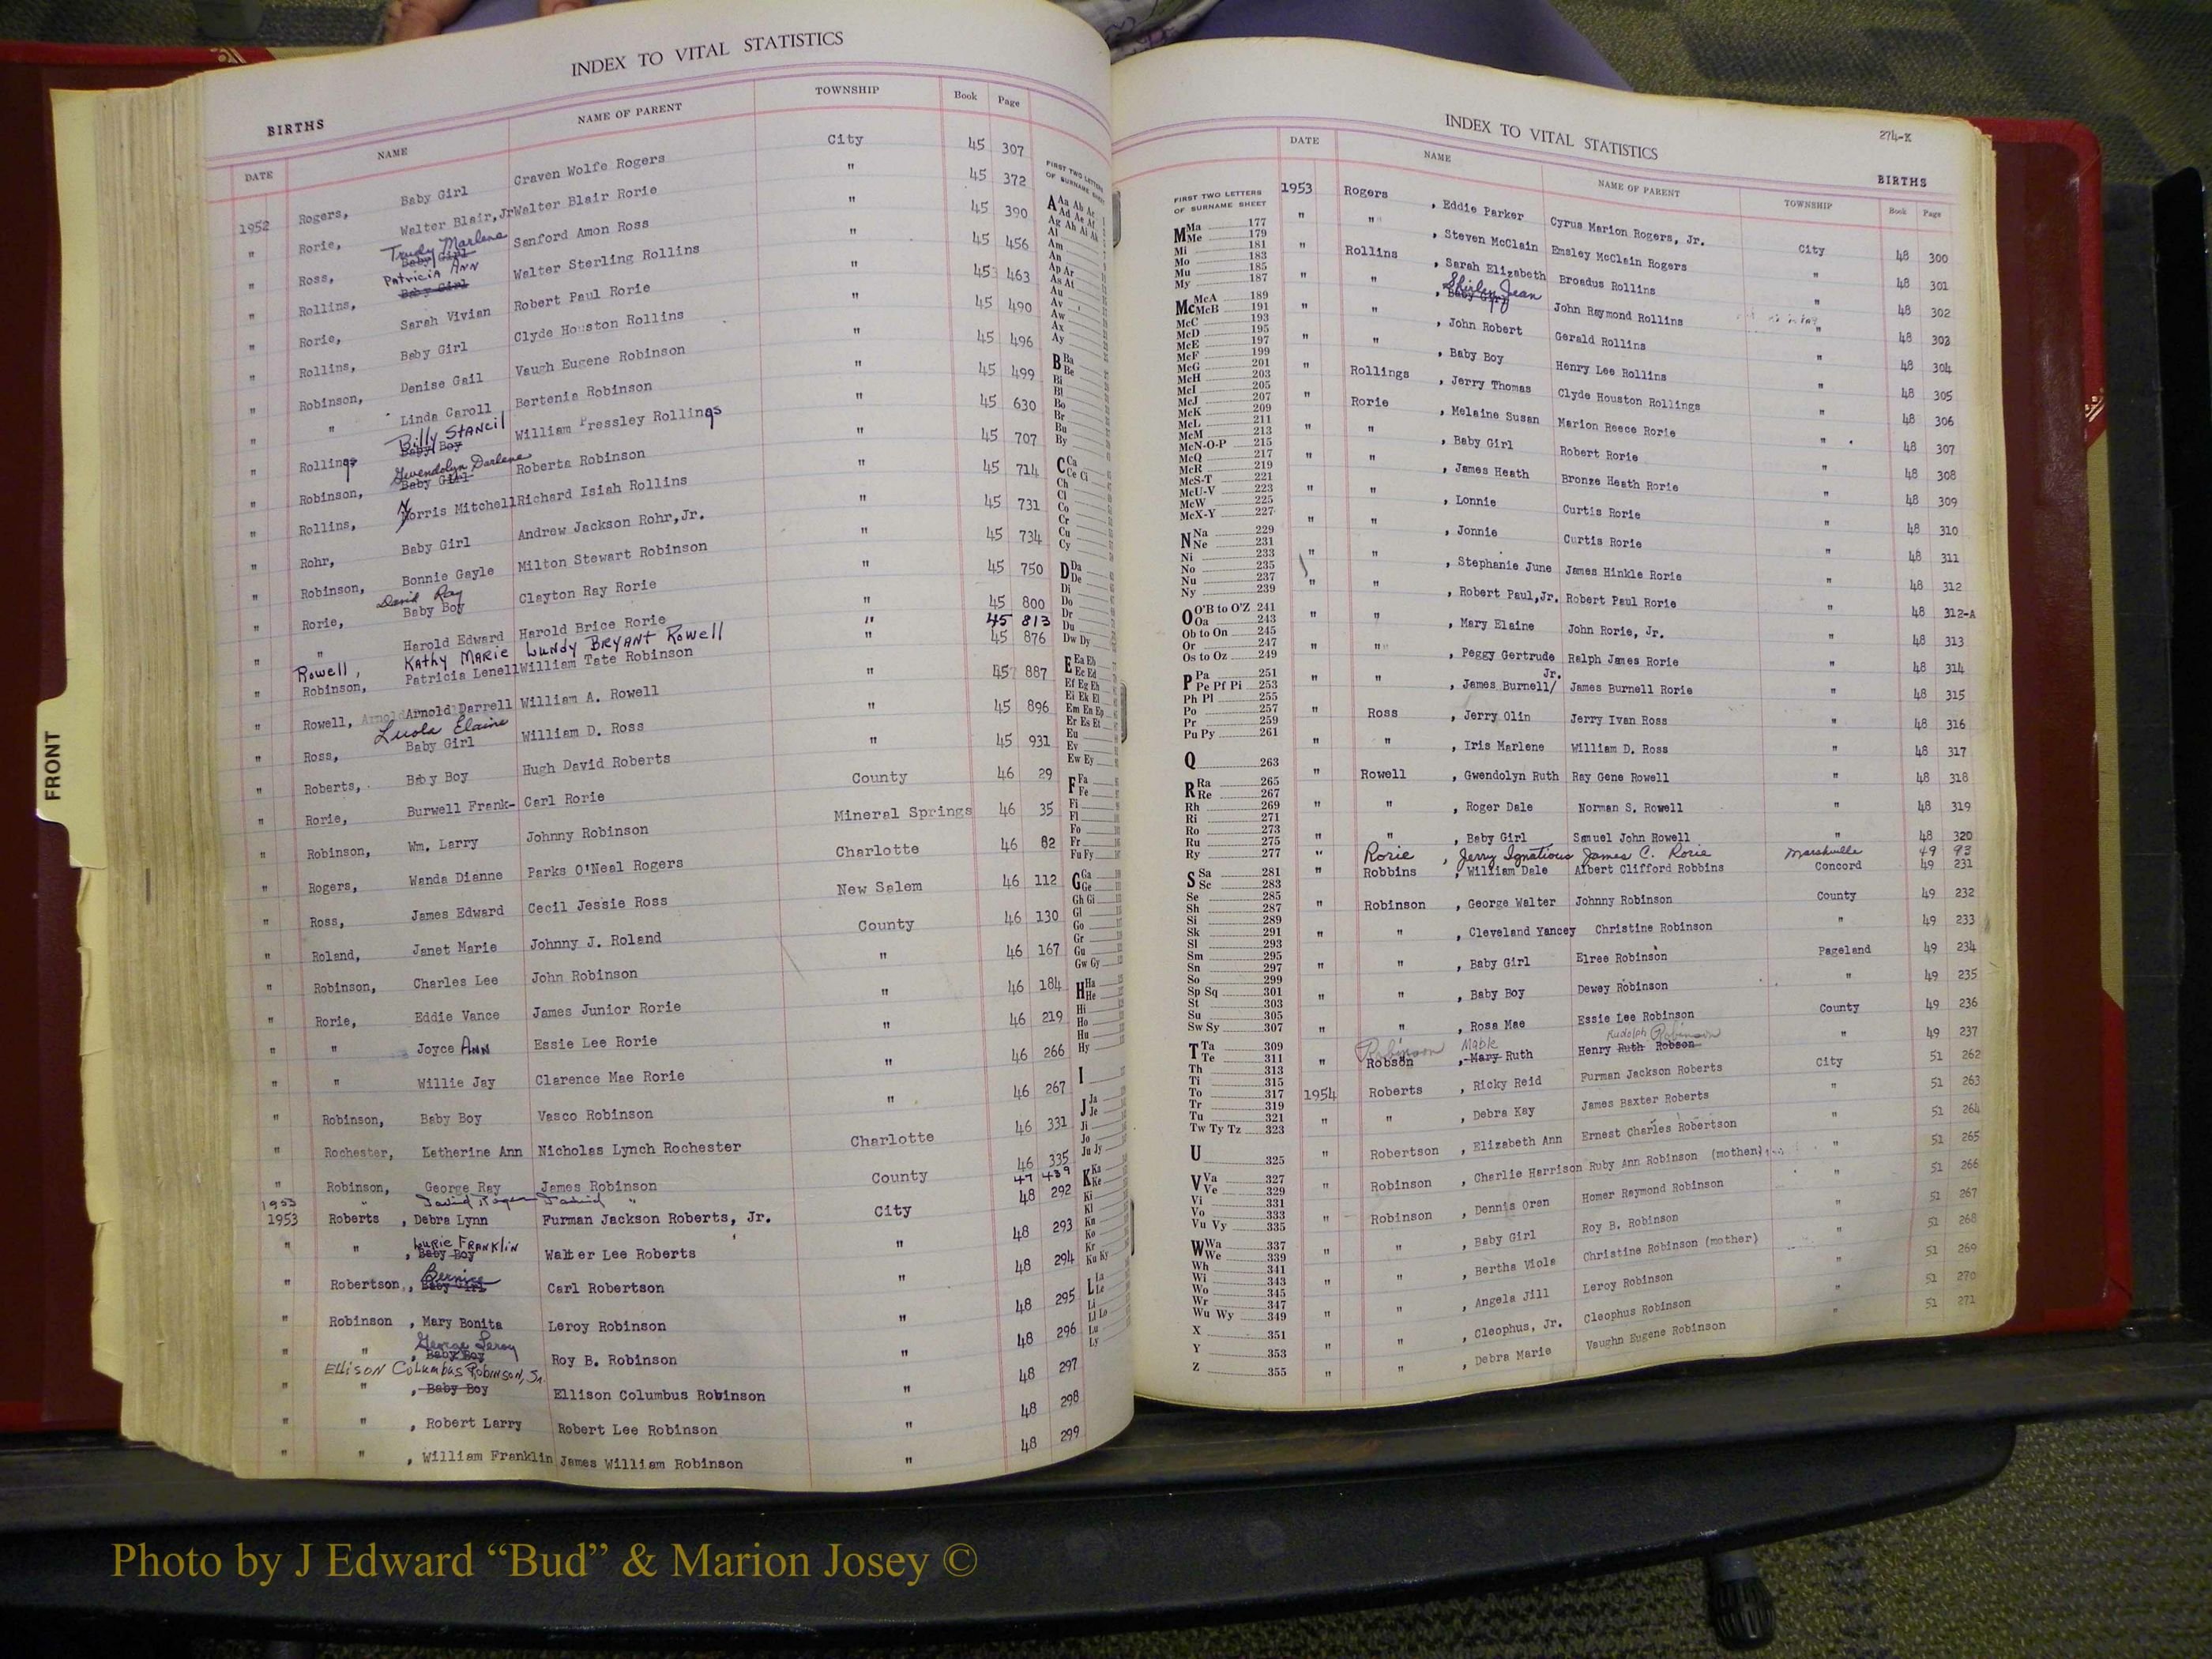 INDEX TO VITAL STATISTICS
BIRTHS
DATE NAME NAME OF PARENT TOWNSHIP Book Page
1952 Rogers, Baby Girl Craven Wolfe Rogers City 45 307
" Rorie, Walter Blair,Jr Walter Blair Rorie " 45 372
" Ross, Trudy Marlene Baby Girl Sanford Amon Ross " 45 390
" Rollins, Patricia Ann Baby Girl Walter Sterling Rollins " 45 456
" Rorie, Sarah Vivian Robert Paul Rorie " 45 463
" Rollins, Baby Girl Clyde Houston Rollins " 45 490
" Robinson, Denise Gail Vaugh Eugene Robinson " 45 496
" " Linda Caroll Bertenia Robinson " 45 499
" Rollings Billy Stancil Baby Boy William Pressley Rollings " 45 630
" Robinson, Gwendolyn Darlene Baby Girl Roberta Robinson " 45 707
" Rollins, Norris Mitchell Richard Isiah Rollins " 45 714
" Rohr, Baby Girl Andrew Jackson Rohr,Jr. " 45 731
" Robinson, Bonnie Gayle Milton Stewart Robinson " 45 734
" Rorie, David Ray Baby Boy Clayton Ray Rorie " 45 750
" " Harold Edward Harold Brice Rorie " 45 800
Rowell, Kathy Marie Lundy Bryant Rowell " 45 813
" Robinson, Patricia Lenell William Tate Robinson " 45 876
" Rowell, Arnold Darrell William A. Rowell " 45 887
" Ross, Luola Elaine Baby Girl William D. Ross " 45 896
" Roberts, Baby Boy Hugh David Roberts " 45 931
" Rorie, Burwell Frank- Carl Rorie County 46 29
" Robinson, Wm. Larry Johnny Robinson Mineral Springs 46 35
" Rogers, Wanda Dianne Parks O'Neal Rogers Charlotte 46 82
" Ross, James Edward Cecil Jessie Ross New Salem 46 112
" Roland, Janet Marie Johnny J. Roland County 46 130
" Robinson, Charles Lee John Robinson " 46 167
" Rorie, Eddie Vance James Junior Rorie " 46 184
" " Joyce Ann Essie Lee Rorie " 46 219
" " Willie Jay Clarence Mae Rorie " 46 266
" Robinson, Baby Boy Vasco Robinson " 46 267
" Rochester, Katherine Ann Nicholas Lynch Rochester Charlotte 46 331
" Robinson, George Ray James Robinson County 46 335
1953 " David " 47 439
1953 Roberts , Debra Lynn Furman Jackson Roberts, Jr. City 48 292
" " , Lurie Franklin Baby Boy Walter Lee Roberts " 48 293
" Robertson, , Bernice Baby Girl Carl Robertson " 48 294
" Robinson , Mary Bonita Leroy Robinson " 48 295
" " , George Leroy Baby Boy Roy B. Robinson " 48 296
Ellison Columbus Robinson, Jr.
" " , Baby Boy Ellison Columbus Robinson " 48 297
" " , Robert Larry Robert Lee Robinson " 48 298
" " , William Franklin James William Robinson " 48 299
FIRST TWO LETTERS
OF SURNAME SHEET
A Aa Ab Ac
Ad Ae Af
Ag Ah Ai Ak
Al
Am
An
Ap Ar
As At
Au
Av
Aw
Ax
Ay
B Ba
Be
Bi
Bl
Bo
Br
Bu
By
C Ca
Ce Ci
Ch
Cl
Co
Cr
Cu
Cy
D Da
De
Di
Do
Dr
Du
Dw Dy
E Ea Eb
Ec Ed
Ef Eg Eh
Ei Ek El
Em En Ep
Er Es Et
Eu
Ev
Ew Ey
F Fa
Fe
Fi
Fl
Fo
Fr
Fu Fy
G Ga
Ge
Gh Gi
Gl
Go
Gr
Gu
Gw Gy
H Ha
He
Hi
Ho
Hu
Hy
I
J Ja
Je
Ji
Jo
Ju Jy
K Ka
Ke
Ki
Kl
Kn
Ko
Kr
Ku Ky
L La
Le
Li
Ll Lo
Lu
Ly
INDEX TO VITAL STATISTICS 274-K
BIRTHS
DATE NAME NAME OF PARENT TOWNSHIP Book Page
1953 Rogers , Eddie Parker Cyrus Marion Rogers, Jr. City 48 300
" " , Steven McClain Emsley McClain Rogers " 48 301
" Rollins , Sarah Elizabeth Broadus Rollins " 48 302
" " , Shirley Jean Baby Girl John Raymond Rollins " 48 303
" " , John Robert Gerald Rollins " 48 304
" " , Baby Boy Henry Lee Rollins " 48 305
" Rollings , Jerry Thomas Clyde Houston Rollings " 48 306
" Rorie , Melaine Susan Marion Reece Rorie " 48 307
" " , Baby Girl Robert Rorie " 48 308
" " , James Heath Bronze Heath Rorie " 48 309
" " , Lonnie Curtis Rorie " 48 310
" " , Jonnie Curtis Rorie " 48 311
" " , Stephanie June James Hinkle Rorie " 48 312
" " , Robert Paul,Jr. Robert Paul Rorie " 48 312-A
" " , Mary Elaine John Rorie, Jr. " 48 313
" " , Peggy Gertrude Ralph James Rorie " 48 314
" " , James Burnell/ Jr. James Burnell Rorie " 48 315
" Ross , Jerry Olin Jerry Ivan Ross " 48 316
" " , Iris Marlene William D. Ross " 48 317
" Rowell , Gwendolyn Ruth Ray Gene Rowell " 48 318
" " , Roger Dale Norman S. Rowell " 48 319
" " , Baby Girl Samuel John Rowell " 48 320
" Rorie , Jerry Ignatious James C. Rorie Marshville 49 93
" Robbins , William Dale Albert Clifford Robbins Concord 49 231
" Robinson , George Walter Johnny Robinson County 49 232
" " , Cleveland Yancey Christine Robinson " 49 233
" " , Baby Girl Elree Robinson Pageland 49 234
" " , Baby Boy Dewey Robinson " 49 235
" " , Rosa Mae Essie Lee Robinson County 49 236
Robinson Mable Rudolph Robinson
" Robson , Mary Ruth Henry Ruth Robson " 49 237
1954 Roberts , Ricky Reid Furman Jackson Roberts City 51 262
" " , Debra Kay James Baxter Roberts " 51 263
" Robertson , Elizabeth Ann Ernest Charles Robertson " 51 264
" Robinson , Charlie Harrison Ruby Ann Robinson (mother) " 51 265
" Robinson , Dennis Oren Homer Raymond Robinson " 51 266
" " , Baby Girl Roy B. Robinson " 51 267
" " , Bertha Viola Christine Robinson (mother) " 51 268
" " , Angela Jill Leroy Robinson " 51 269
" " , Cleophus, Jr. Cleophus Robinson " 51 270
" " , Debra Marie Vaughn Eugene Robinson " 51 271
FIRST TWO LETTERS
OF SURNAME SHEET
M Ma 177
Me 179
Mi 181
Mo 183
Mu 185
My 187
Mc McA 189
McB 191
McC 193
McD 195
McE 197
McF 199
McG 201
McH 203
McI 205
McJ 207
McK 209
McL 211
McM 213
McN-O-P 215
McQ 217
McR 219
McS-T 221
McU-V 223
McW 225
McX-Y 227
N Na 229
Ne 231
Ni 233
No 235
Nu 237
Ny 239
O O'B to O'Z 241
Oa 243
Ob to On 245
Or 247
Os to Oz 249
P Pa 251
Pe Pf Pi 253
Ph Pl 255
Po 257
Pr 259
Pu Py 261
Q 263
R Ra 265
Re 267
Rh 269
Ri 271
Ro 273
Ru 275
Ry 277
S Sa 281
Sc 283
Se 285
Sh 287
Si 289
Sk 291
Sl 293
Sm 295
Sn 297
So 299
Sp Sq 301
St 303
Su 305
Sw Sy 307
T Ta 309
Te 311
Th 313
Ti 315
To 317
Tr 319
Tu 321
Tw Ty Tz 323
U 325
V Va 327
Ve 329
Vi 331
Vo 333
Vu Vy 335
W Wa 337
We 339
Wh 341
Wi 343
Wo 345
Wr 347
Wu Wy 349
X 351
Y 353
Z 355
FRONT
Photo by J Edward “Bud” & Marion Josey ©